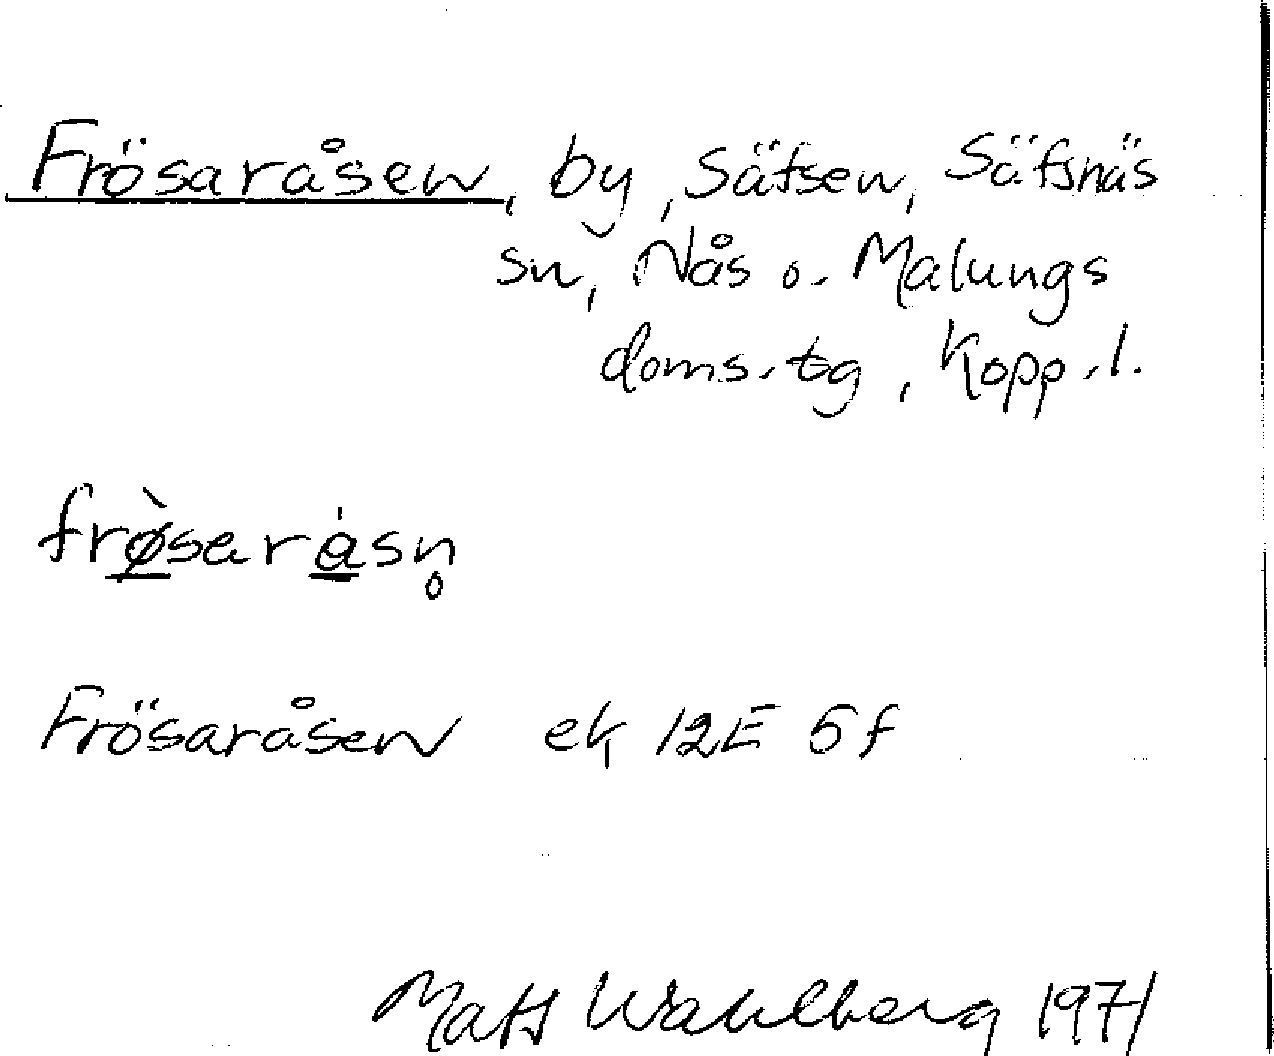 Frösaråsen, by, Säfsen, Säfsnäs
sn, Nås o. Malungs
doms.tg, Kopp.l.
frø̀saråsn̥
Frösaråsen ek 12E 5f
Mats Wahlberg 1971